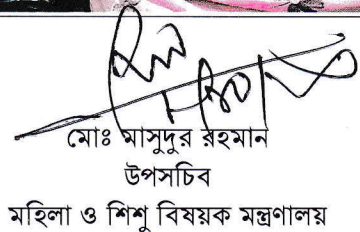 মোঃ মাসুদুর রহমান
উপসচিব
মহিলা ও শিশু বিষয়ক মন্ত্রণালয়